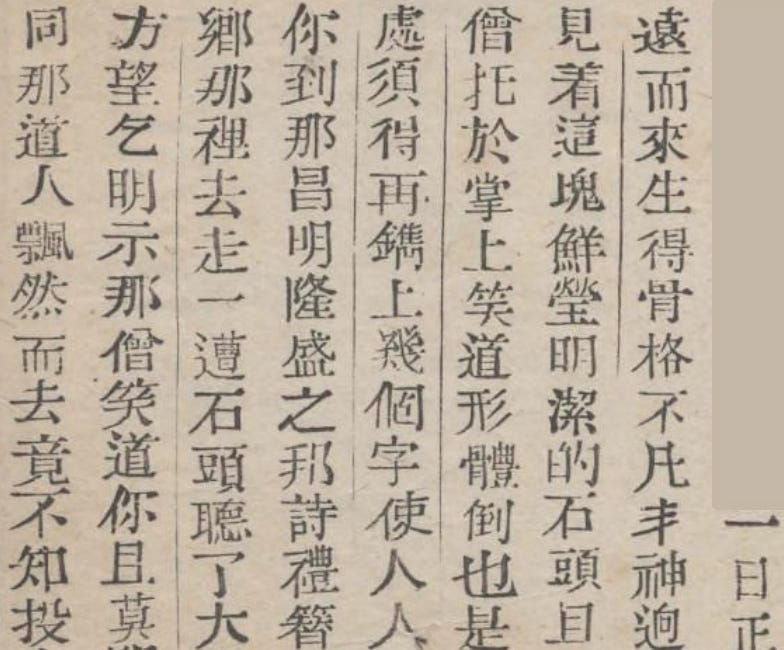 一日正
遠而來生得骨格不凡丰神迥
見着這塊鮮瑩明潔的石頭且
僧托於掌上笑道形體倒也是
處須得再鐫上㡬個字使人人
你到那昌明隆盛之邦詩禮簪
鄉那裡去走一遭石頭聽了大
方望乞明示那僧笑道你且莫
同那道人飄然而去竟不知投